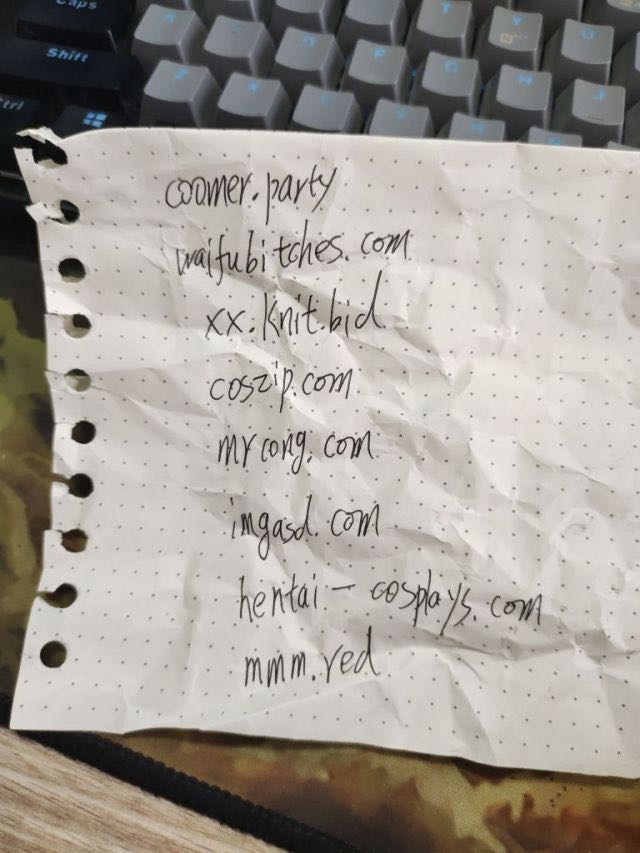 Caps
Shift
Ctrl
T
Y
U
J
coomer.party
waifubitches.com
xx.knit.bid
coszip.com
mrcong.com
imgasd.com
hentai-cosplays.com
mmm.red